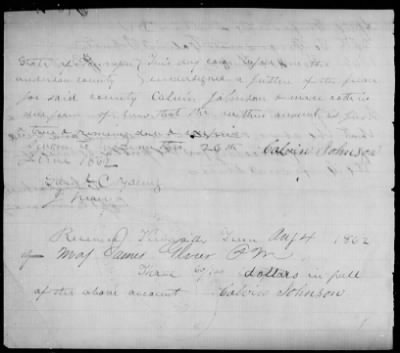 State of Tennessee } This day came before me the
anderson county } undersigned a Justice of the peace
for said county Calvin Johnson & made oath in
due form of Law that the within account is just
true & remains due & unpaid
Sworn to before me this 26th Calvin Johnson
June 1862
J. C. Young
Received Knoxville Tenn Aug 4 1862
of Maj James Glover Q M
Three 60/100 dollars in full
of the above account Calvin Johnson